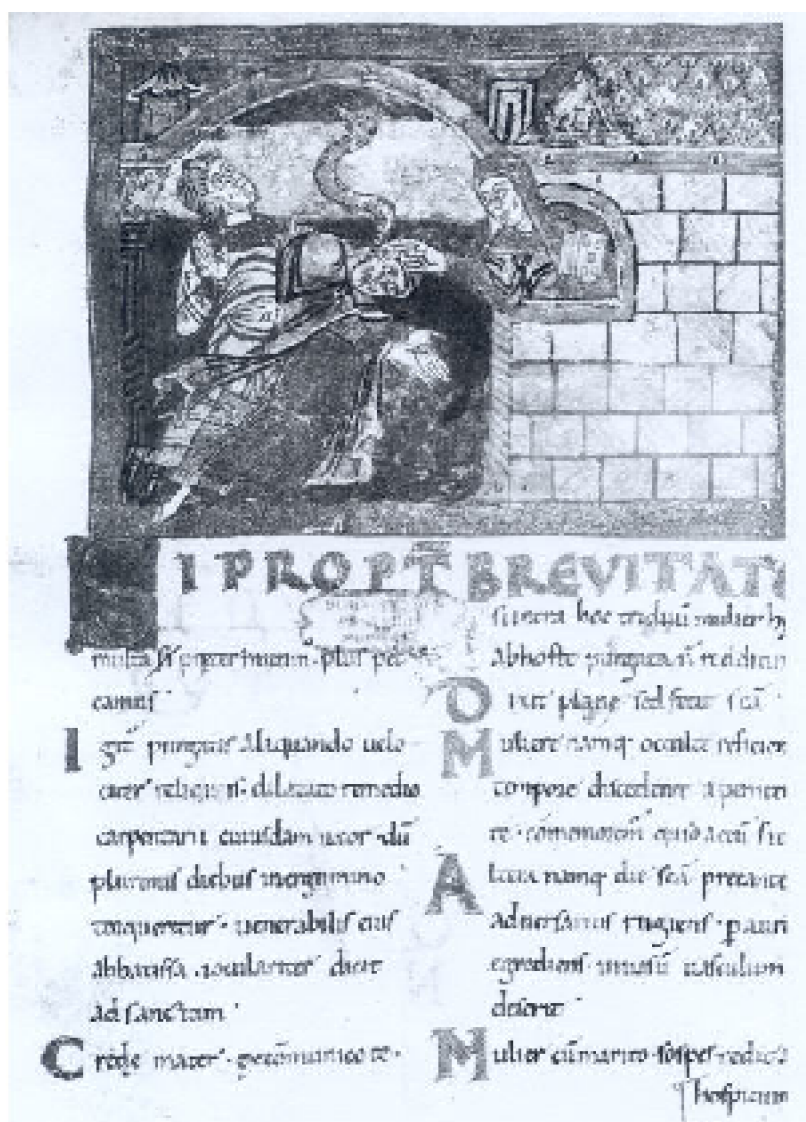 SI PROPT BREVITATE
multa si preterimus. plus pec
camus
Igit purgatis aliquando uelo
citer reliquis. dilatato remedio
carpentarii cuiusdam uxor. du
plurimis diebus inergumino
torqueretur. uenerabilis eius
abbatissa. ioculariter dicit
ad sanctam
Crede mater. te.
si intra hoc triduu mulier h
ab hoste purgata n reddit
Dixit plane sed sca
Muliere namq occulte reficien
tempore discedente aperien
te. comonotem quid actu sit
Altera namq die sca precante
aduersarius rugiens. p auri
egrediens inuasu uasculum
deserit
Mulier cu marito. sospes redit
hospicium